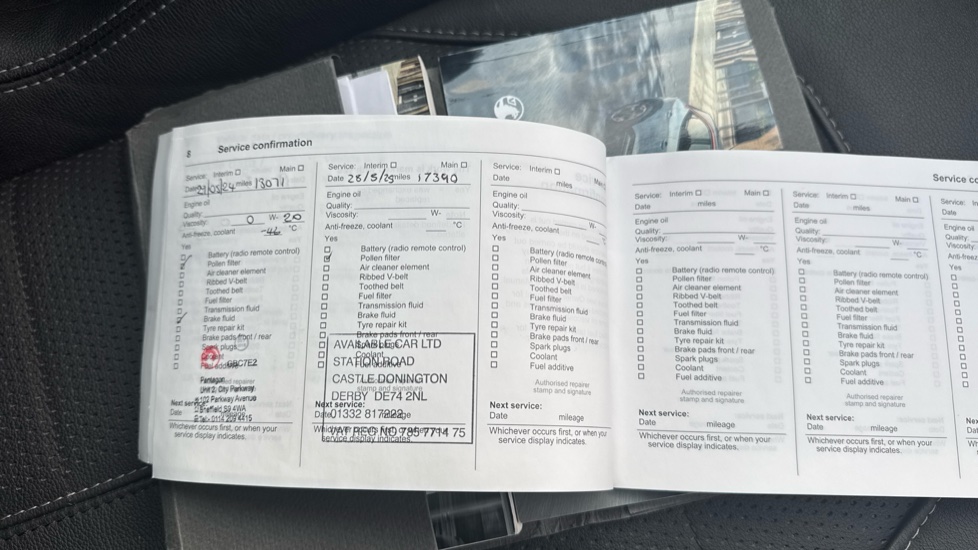 8 Service confirmation
Service: Interim Main
Date 21/05/24 miles 13071
Engine oil
Quality:
Viscosity: 0 W- 20
Anti-freeze, coolant -46 °C
Yes
Battery (radio remote control)
Pollen filter
Air cleaner element
Ribbed V-belt
Toothed belt
Fuel filter
Transmission fluid
Brake fluid
Tyre repair kit
Brake pads front / rear
Spark plugs
Fuel additive
Pentagon
Unit 2, City Parkway
102 Parkway Avenue
Sheffield S9 4WA
Next service:
Date
Whichever occurs first, or when your
service display indicates.
Service: Interim Main
Date 28/5/25 miles 17390
Engine oil
Quality:
Viscosity: W-
Anti-freeze, coolant °C
Yes
Battery (radio remote control)
Pollen filter
Air cleaner element
Ribbed V-belt
Toothed belt
Fuel filter
Transmission fluid
Brake fluid
Tyre repair kit
Brake pads front / rear
Coolant
AVAILABLE CAR LTD
STATION ROAD
CASTLE DONINGTON
stamp and signature
DERBY DE74 2NL
Next service:
01332 817222
VAT REG NO 785 7714 75
service display indicates.
Service: Interim Main
Date miles
Engine oil
Quality:
Viscosity: W-
Anti-freeze, coolant
Yes
Battery (radio remote
Pollen filter
Air cleaner element
Ribbed V-belt
Toothed belt
Fuel filter
Transmission fluid
Brake fluid
Tyre repair kit
Brake pads front / rear
Spark plugs
Coolant
Fuel additive
Authorised repairer
stamp and signature
Next service:
Date mileage
Whichever occurs first, or when your
service display indicates.
Service: Interim Main
Date miles
Engine oil
Quality:
Viscosity: W-
Anti-freeze, coolant °C
Yes
Battery (radio remote control)
Pollen filter
Air cleaner element
Ribbed V-belt
Toothed belt
Fuel filter
Transmission fluid
Brake fluid
Tyre repair kit
Brake pads front / rear
Spark plugs
Coolant
Fuel additive
Authorised repairer
stamp and signature
Next service:
Date mileage
Whichever occurs first, or when your
service display indicates.
Service co
Service: Interim Main
Date miles
Engine oil
Quality:
Viscosity: W-
Anti-freeze, coolant °C
Yes
Battery (radio remote control)
Pollen filter
Air cleaner element
Ribbed V-belt
Toothed belt
Fuel filter
Transmission fluid
Brake fluid
Tyre repair kit
Brake pads front / rear
Spark plugs
Coolant
Fuel additive
Authorised repairer
stamp and signature
Next service:
Date mileage
Whichever occurs first, or when your
service display indicates.
Service: In
Date
Engine oil
Quality:
Viscosity:
Anti-freez
Yes
Nex
Dat
Wh